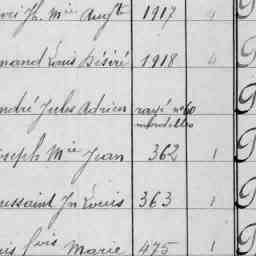 Jh Mie Augte 1917 4
Louis Désiré 1918
André Jules Adrien rayé no 60
Joseph Mie Jean 362 1
Toussaint Jn Louis 363 1
Marie 475 1